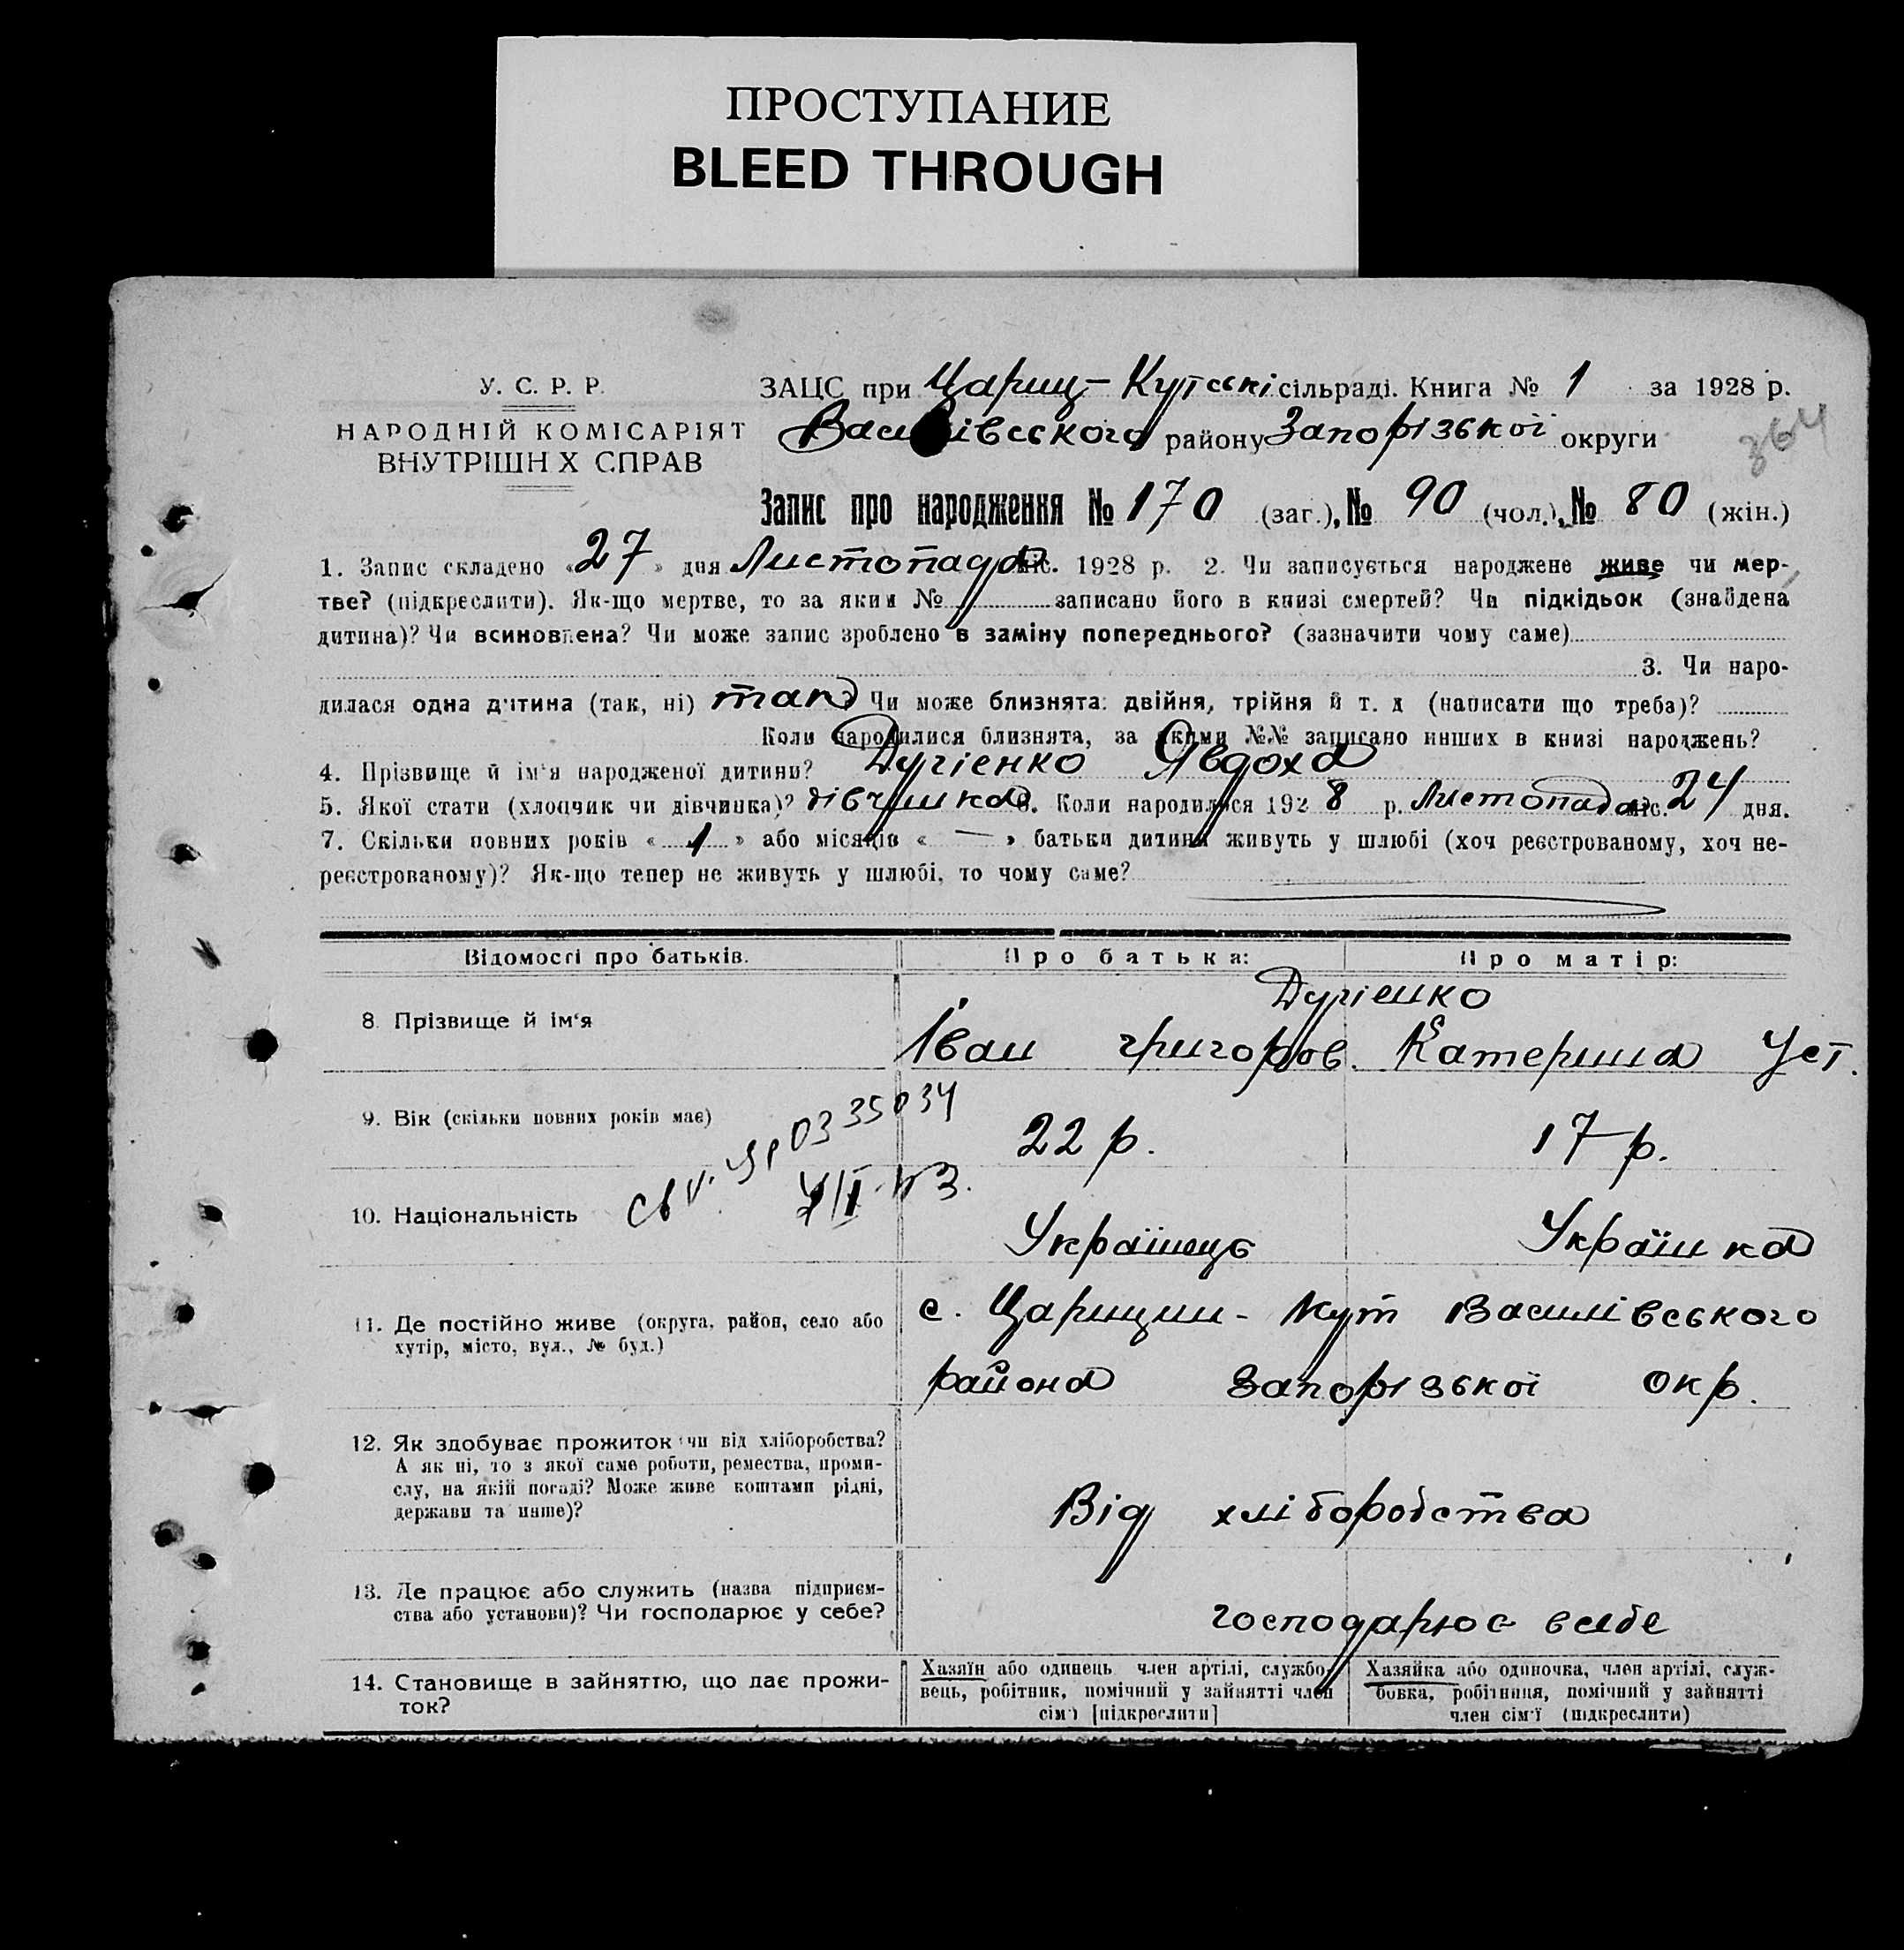 ПРОСТУПАНИЕ
BLEED THROUGH
У. С. Р. Р.
НАРОДНІЙ КОМІСАРІЯТ
ВНУТРІШН Х СПРАВ
ЗАЦС при Цариц-Кутсскі сільраді. Книга № 1 за 1928 р.
Василівсского району Запорізької округи
364
Запис про народження № 170 (заг.), № 90 (чол.), № 80 (жін.)
1. Запис складено «27» дня Листопада міс. 1928 р. 2. Чи записується народжене живе чи мер-
тве? (підкреслити). Як-що мертве, то за яким № записано його в книзі смертей? Чи підкідьок (знайдена
дитина)? Чи всиновлена? Чи може запис зроблено в заміну попереднього? (зазначити чому саме)
3. Чи наро-
дилася одна дитина (так, ні) так Чи може близнята: двійня, трійня й т. д (написати що треба)?
Коли народилися близнята, за якими №№ записано инших в книзі народжень?
4. Прізвище й ім'я народженої дитини? Дугієнко Явдоха
5. Якої стати (хлопчик чи дівчинка)? дівчинка 6. Коли народилася 1928 р. Листопада міс. 24 дня.
7. Скільки повних років « 1 » або місяців « — » батьки дитини живуть у шлюбі (хоч реєстрованому, хоч не-
реєстрованому)? Як-що тепер не живуть у шлюбі, то чому саме?
Відомості про батьків. Про батька: Про матір:
Дугієнко
8. Прізвище й ім'я Іван григоров. Катерина Уст.
9. Вік (скільки повних років має) 22 р. 17 р.
0335034
10. Національність Українець Українка
11. Де постійно живе (округа, район, село або
хутір, місто, вул., № буд.)
с. Царицин - Кут Василівського
района Запорізької окр.
12. Як здобуває прожиток чи від хліборобства?
А як ні, то з якої саме роботи, ремества, проми-
слу, на якій посаді? Може живе коштами рідні,
держави та инше)?
Від хліборобства
13. Де працює або служить (назва підприєм-
ства або установи)? Чи господарює у себе?
господарює всебе
14. Становище в зайняттю, що дає прожи-
ток?
Хазяїн або одинець член артілі, службо-
вець, робітник, помічний у зайнятті член
сім'ї [підкреслити]
Хазяйка або одиночка, член артілі, служ-
бовка, робітниця, помічний у зайнятті
член сім'ї (підкреслити)